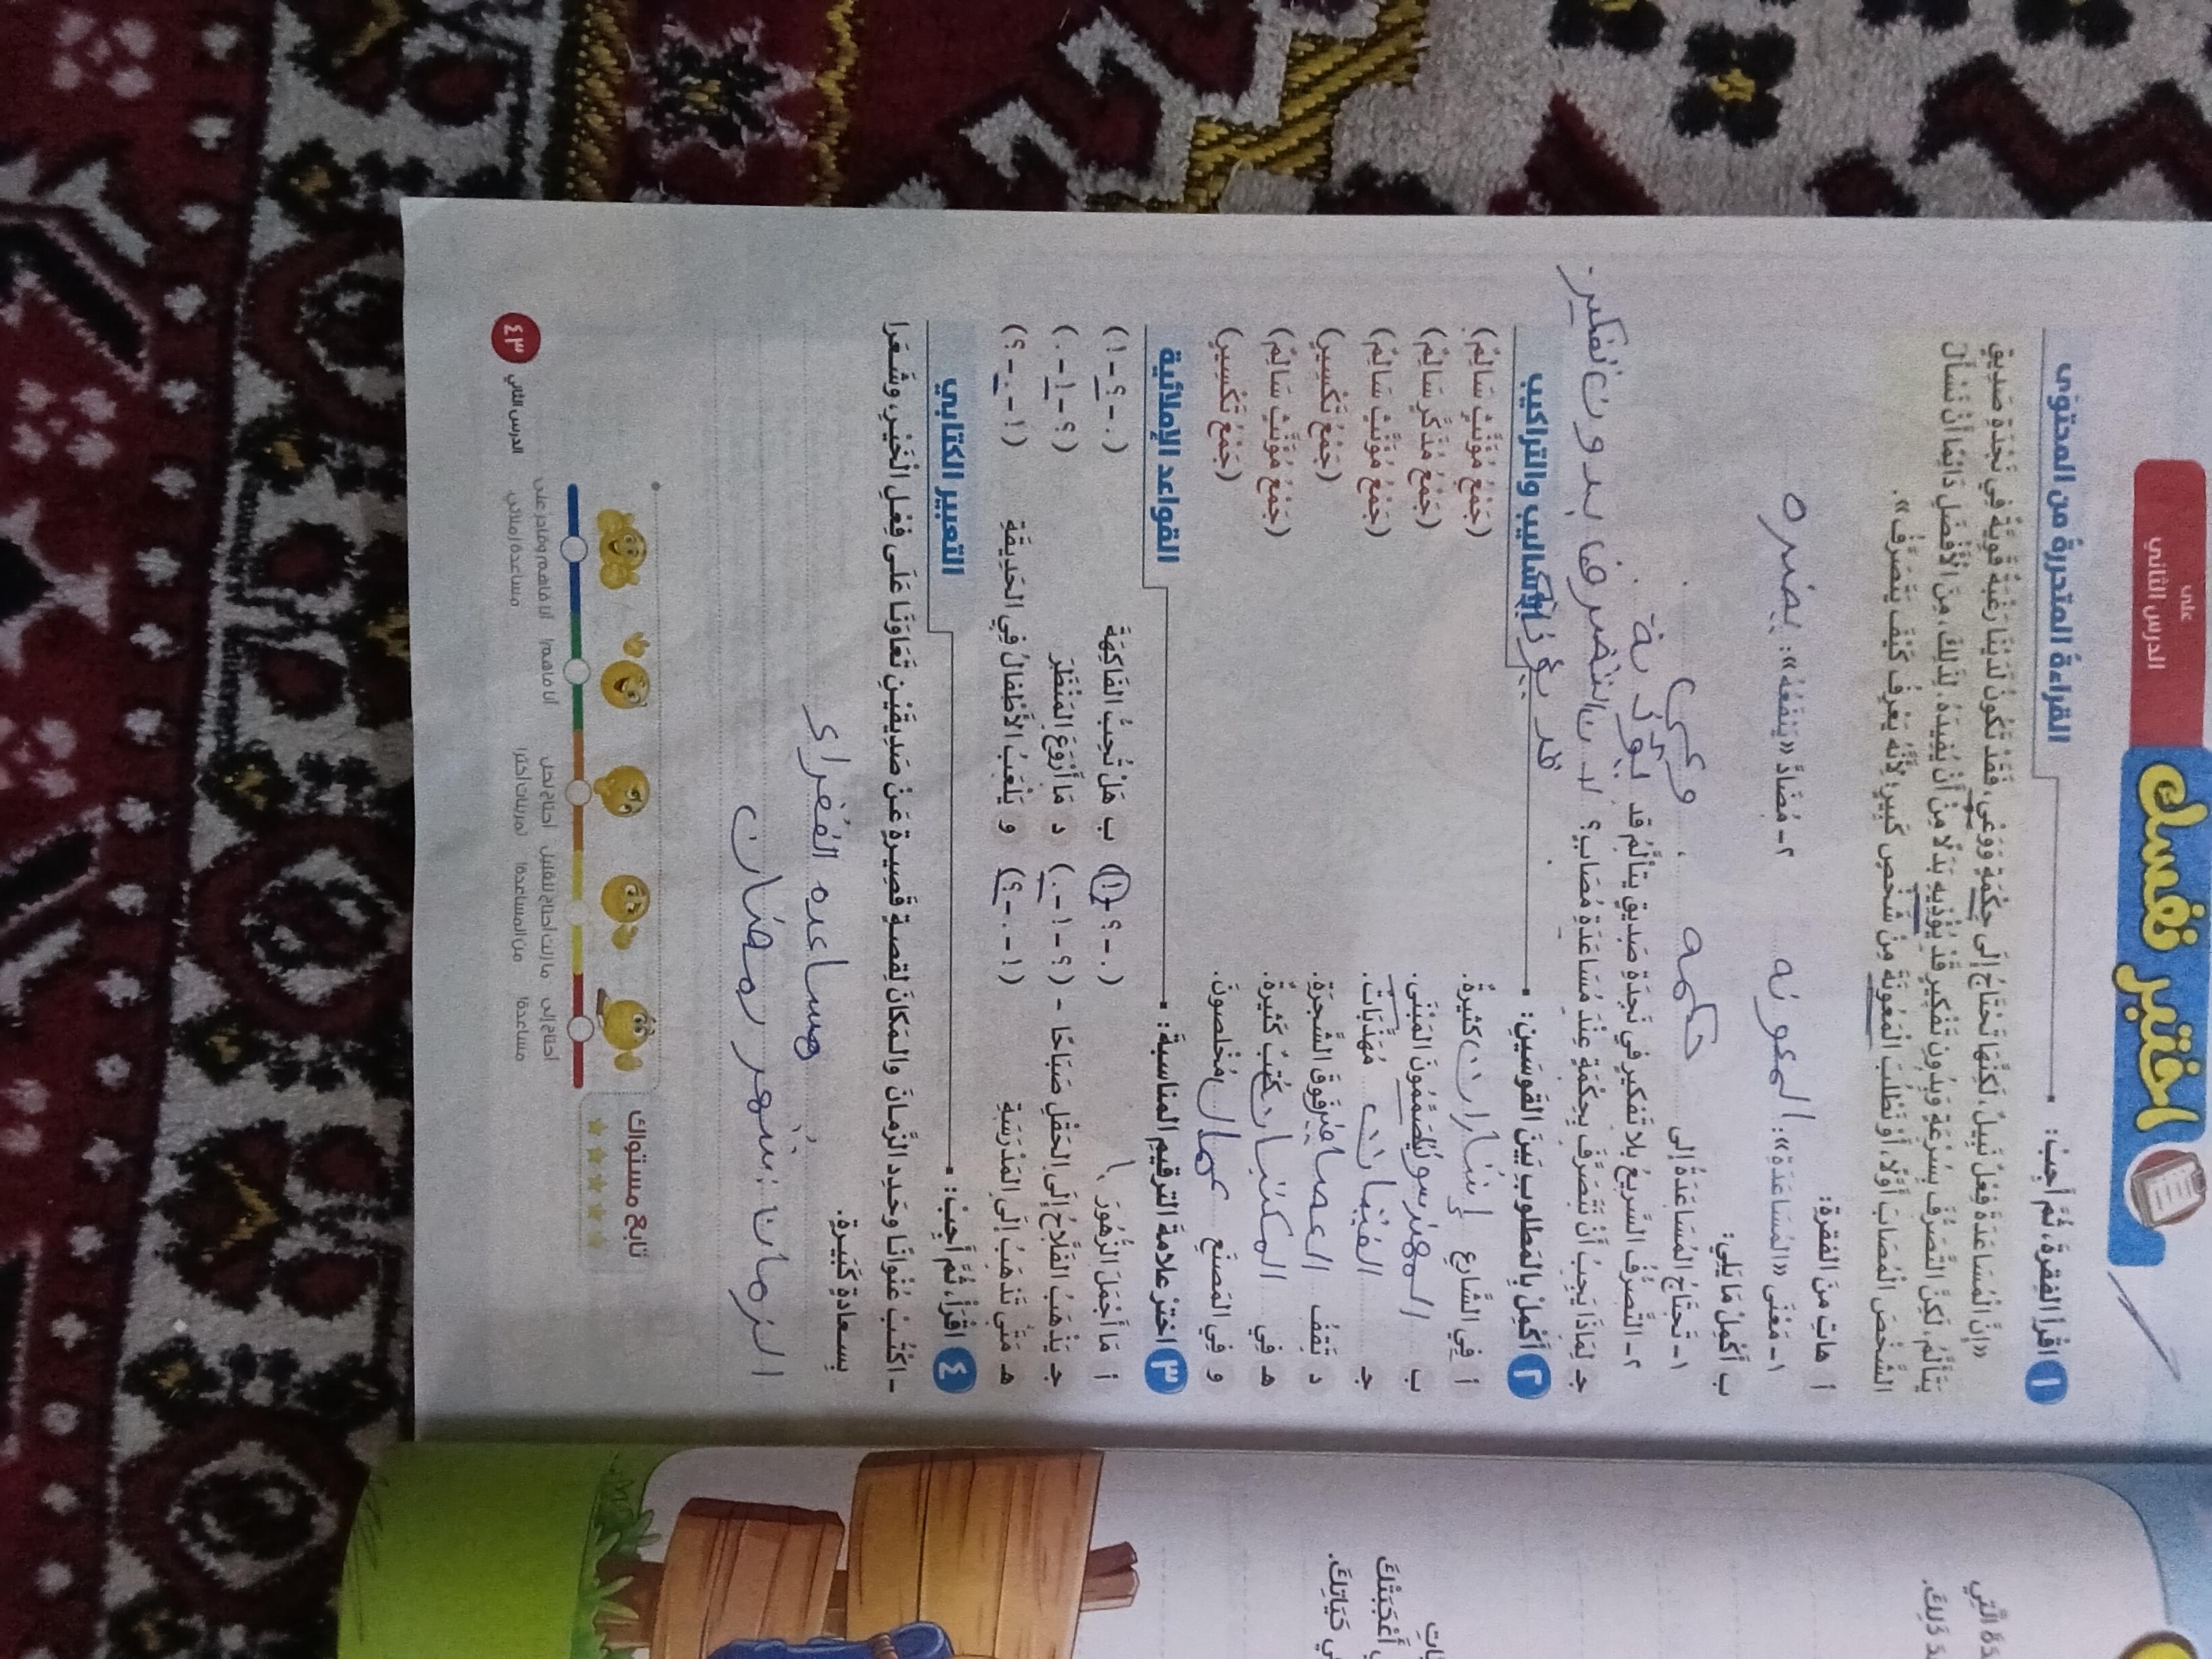 اختبر نفسك
على
الدرس الثاني
القراءة المتحررة من المحتوى
١ اقْرأ الفقرةَ، ثُمَّ أَجِبْ:
«إِنَّ الْمُسَاعَدَةَ فِعْلٌ نَبِيلٌ، لَكِنَّهَا تَحْتَاجُ إِلَى حِكْمَةٍ وَوَعْيٍ، فَقَدْ تَكُونُ لَدَيْنَا رَغْبَةٌ قَوِيَّةٌ فِي نَجْدَةِ صَدِيقٍ
يَتَأَلَّمُ، لَكِنَّ التَّصَرُّفَ بِسُرْعَةٍ وَبِدُونِ تَفْكِيرٍ قَدْ يُؤْذِيهِ بَدَلًا مِنْ أَنْ يُفِيدَهُ، لِذَلِكَ، مِنَ الْأَفْضَلِ دَائِمًا أَنْ نَسْأَلَ
الشَّخْصَ الْمُصَابَ أَوَّلًا، أَوْ نَطْلُبَ الْمَعُونَةَ مِنْ شَخْصٍ كَبِيرٍ؛ لِأَنَّهُ يَعْرِفُ كَيْفَ يَتَصَرَّفُ».
أ هاتِ مِنَ الفقرةِ:
١- مَعْنَى «المُسَاعَدَة»: المعونه ٢- مُضَادَّ «يَنْفَعُهُ»: يضره
ب أَكْمِلْ مَا يَلِي:
١- تَحتاجُ المُسَاعَدَةُ إِلى حكمه ، وعي
٢- التَّصرُّفُ السَّريعُ بِلا تَفكيرٍ في نَجدَةِ صَديقٍ يتألَّمُ قد
جـ لِمَاذَا يَجِبُ أَنْ نَتَصَرَّفَ بِحِكْمَةٍ عِنْدَ مُسَاعَدَةِ مُصَابٍ؟ لان التضرف بدون تفكير
قد يؤذيه
الأساليب والتراكيب
٢ أَكْمِلْ بِالمَطلوبِ بَينَ القَوسَينِ:
أ فِي الشَّارِعِ إشارات كَثيرةٌ. (جَمْعُ مُؤَنَّثٍ سَالِمٌ)
ب المهندسون يُصَمِّمُونَ المَبْنَى. (جَمْعُ مُذَكَّرٍ سَالِمٌ)
جـ الفتيات مُهَذَّبَاتٌ. (جَمْعُ مُؤَنَّثٍ سَالِمٌ)
د تَقِفُ العصافير فَوقَ الشَّجَرَةِ. (جَمْعُ تَكْسِيرٍ)
هـ فِي المكتبات كُتُبٌ كَثيرَةٌ. (جَمْعُ مُؤَنَّثٍ سَالِمٌ)
و فِي المَصنَعِ عمال مُخْلِصونَ. (جَمْعُ تَكْسِيرٍ)
القواعد الإملائية
٣ اخترْ علامةَ الترقيمِ المناسبةَ:
أ مَا أَجْمَلَ الزُّهُورَ ! (! - ؟ - .) ب هَلْ تُحِبُّ الفَاكِهَةَ (! - ؟ - .)
جـ يَذْهَبُ الفَلَّاحُ إِلَى الحَقْلِ صَبَاحًا - (. - ! - ؟) د مَا أَرْوَعَ المَنْظَرَ (. - ! - ؟)
هـ مَتَى تَذْهَبُ إِلَى المَدْرَسَةِ (؟ - . - !) و يَلْعَبُ الأَطْفَالُ فِي الحَدِيقَةِ (؟ - . - !)
التعبير الكتابي
٤ اقْرَأْ، ثُمَّ أَجِبْ:
- اكْتُبْ عُنْوانًا وحَدِدِ الزَّمانَ والمَكانَ لِقِصةٍ قَصِيرةٍ عَنْ صَدِيقَيْنِ تَعَاوَنَا عَلَى فِعْلِ الْخَيْرِ، وشَعَرا
بِسعادةٍ كَبيرةٍ.
مساعده الفقراء
الزمان : شهر رمضان
تابع مستواك
أحتاج إلى مساعدة!
ما زلت أحتاج للقليل من المساعدة!
أحتاج لحل تدريبات أكثر!
أنا فاهم!
أنا فاهم وقادر على مساعدة زملائي
٤٣ الدرس الثاني